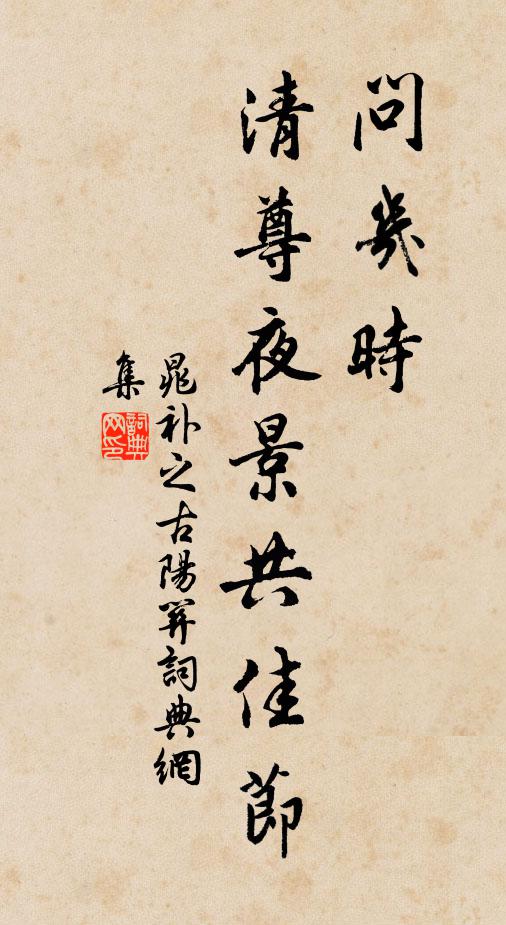 問幾時
清尊夜景共佳節
晁补之古陽關詞典網
集
詞典
网印